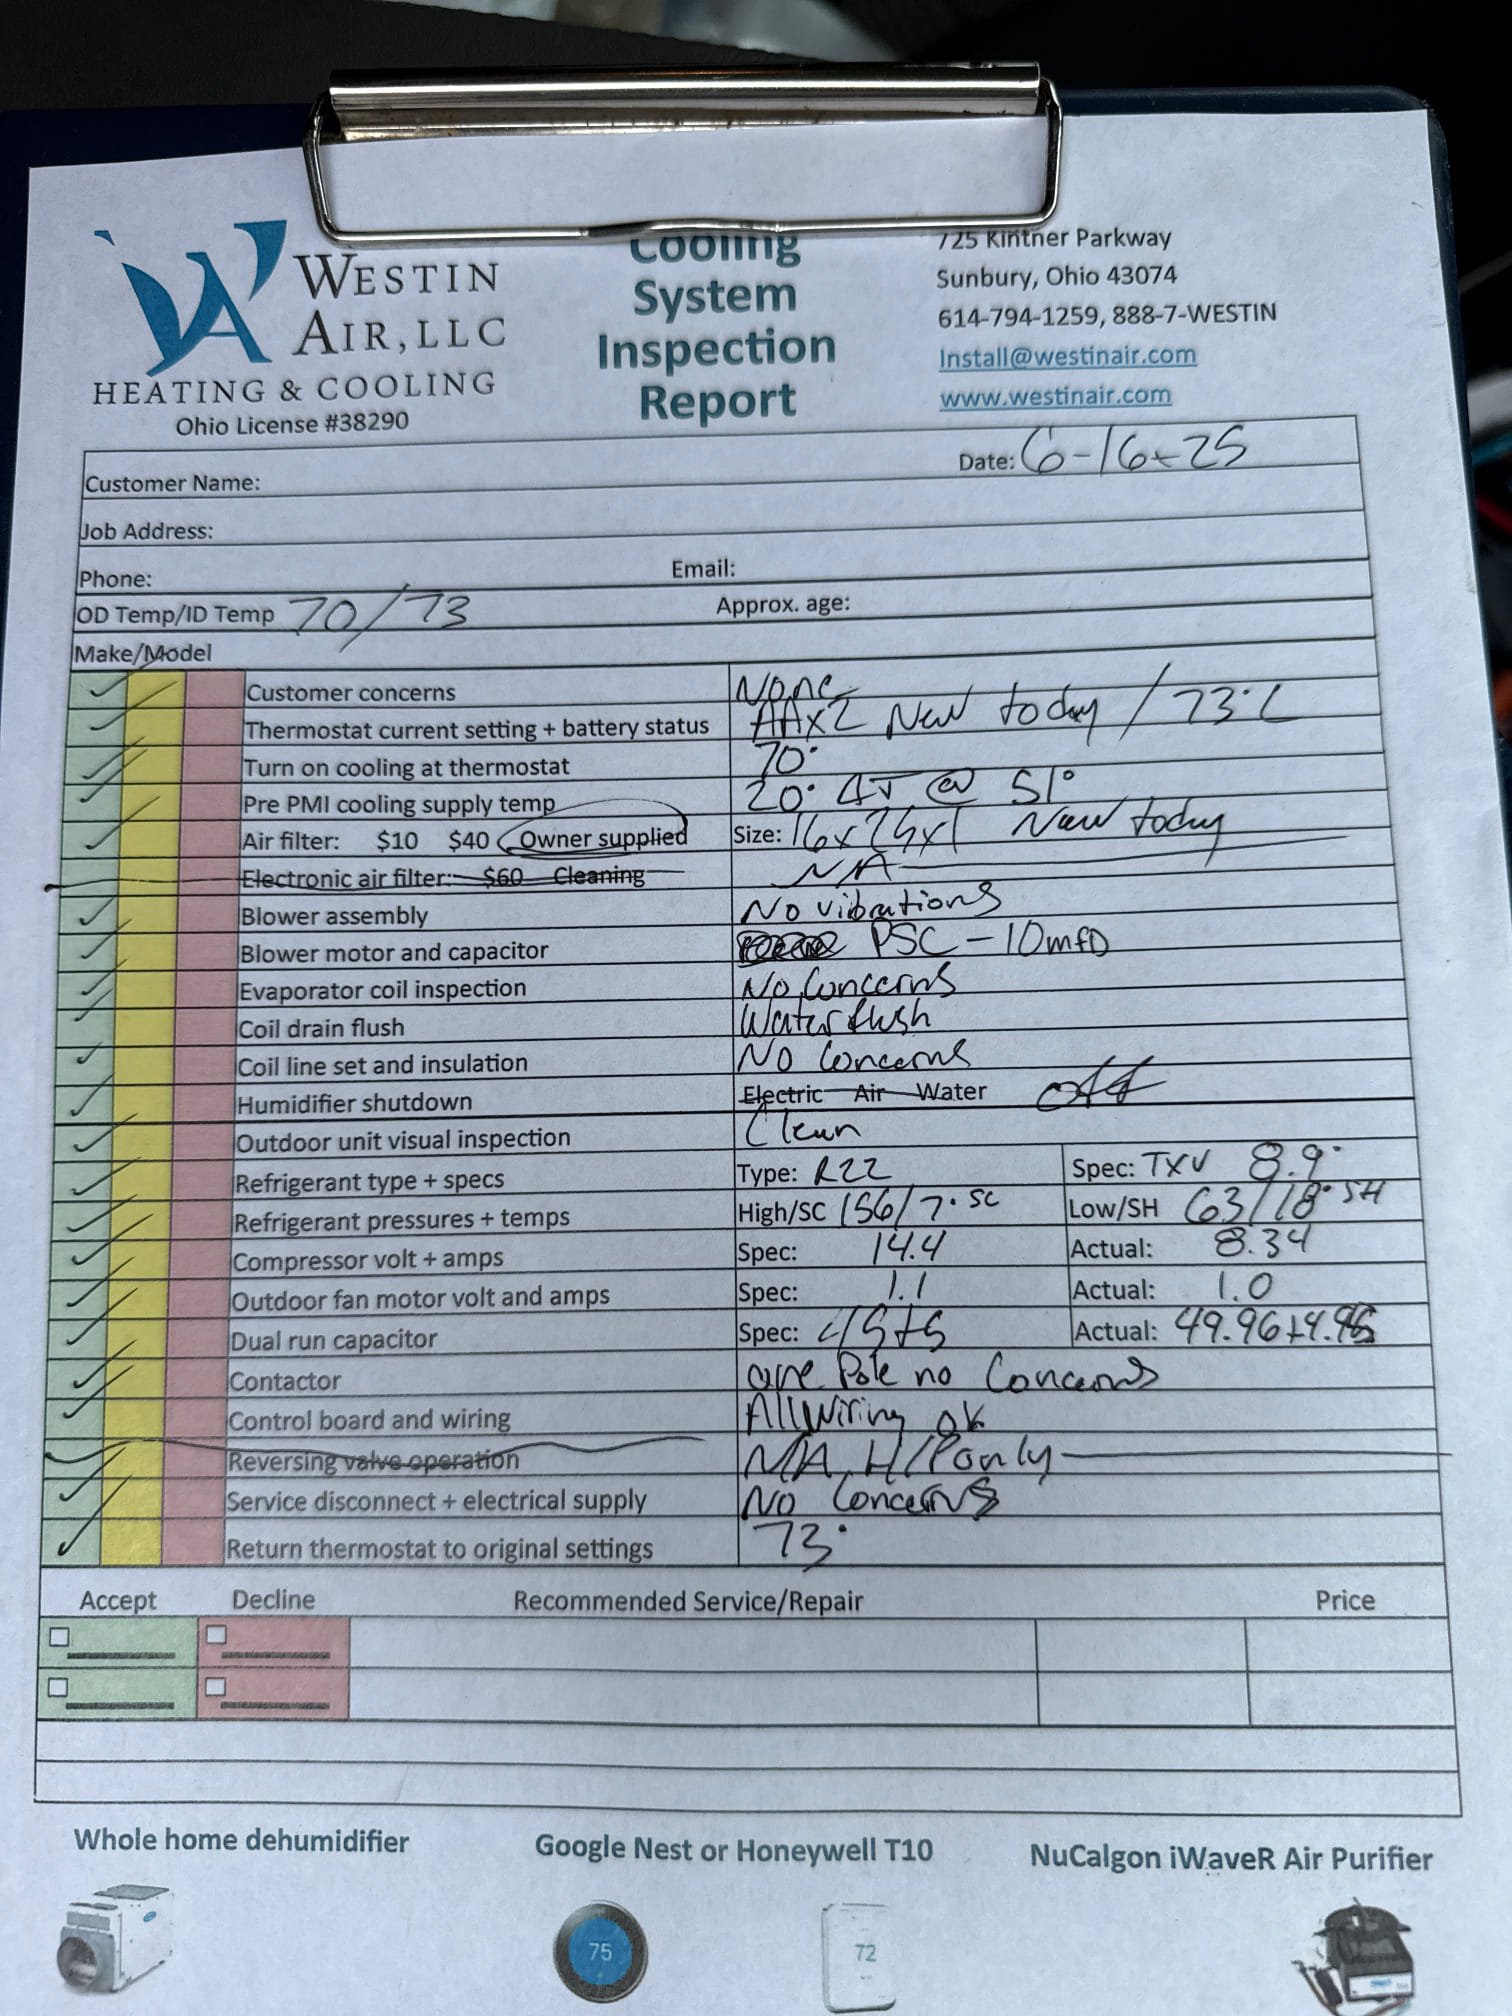 WESTIN
AIR, LLC
HEATING & COOLING
Ohio License #38290
Cooling
System
Inspection
Report
725 Kintner Parkway
Sunbury, Ohio 43074
614-794-1259, 888-7-WESTIN
Install@westinair.com
www.westinair.com
Customer Name: Date: 6-16-25
Job Address:
Phone: Email:
OD Temp/ID Temp 70/73 Approx. age:
Make/Model
Customer concerns None
Thermostat current setting + battery status AAx2 New today / 73°C
Turn on cooling at thermostat 70°
Pre PMI cooling supply temp 20° ΔT @ 51°
Air filter: $10 $40 Owner supplied Size: 16x25x1 New today
Electronic air filter: $60 Cleaning NA
Blower assembly No vibrations
Blower motor and capacitor PSC - 10mfD
Evaporator coil inspection No Concerns
Coil drain flush Water flush
Coil line set and insulation No Concerns
Humidifier shutdown Electric Air Water off
Outdoor unit visual inspection Clean
Refrigerant type + specs Type: R22 Spec: TXV 8.9°
Refrigerant pressures + temps High/SC 156/7° SC Low/SH 63/18° SH
Compressor volt + amps Spec: 14.4 Actual: 8.34
Outdoor fan motor volt and amps Spec: 1.1 Actual: 1.0
Dual run capacitor Spec: 45+5 Actual: 49.96+4.95
Contactor one Pole no Concerns
Control board and wiring All wiring ok
Reversing valve operation N/A H/P only
Service disconnect + electrical supply No Concerns
Return thermostat to original settings 73°
Accept Decline Recommended Service/Repair Price
Whole home dehumidifier Google Nest or Honeywell T10 NuCalgon iWaveR Air Purifier
75 72